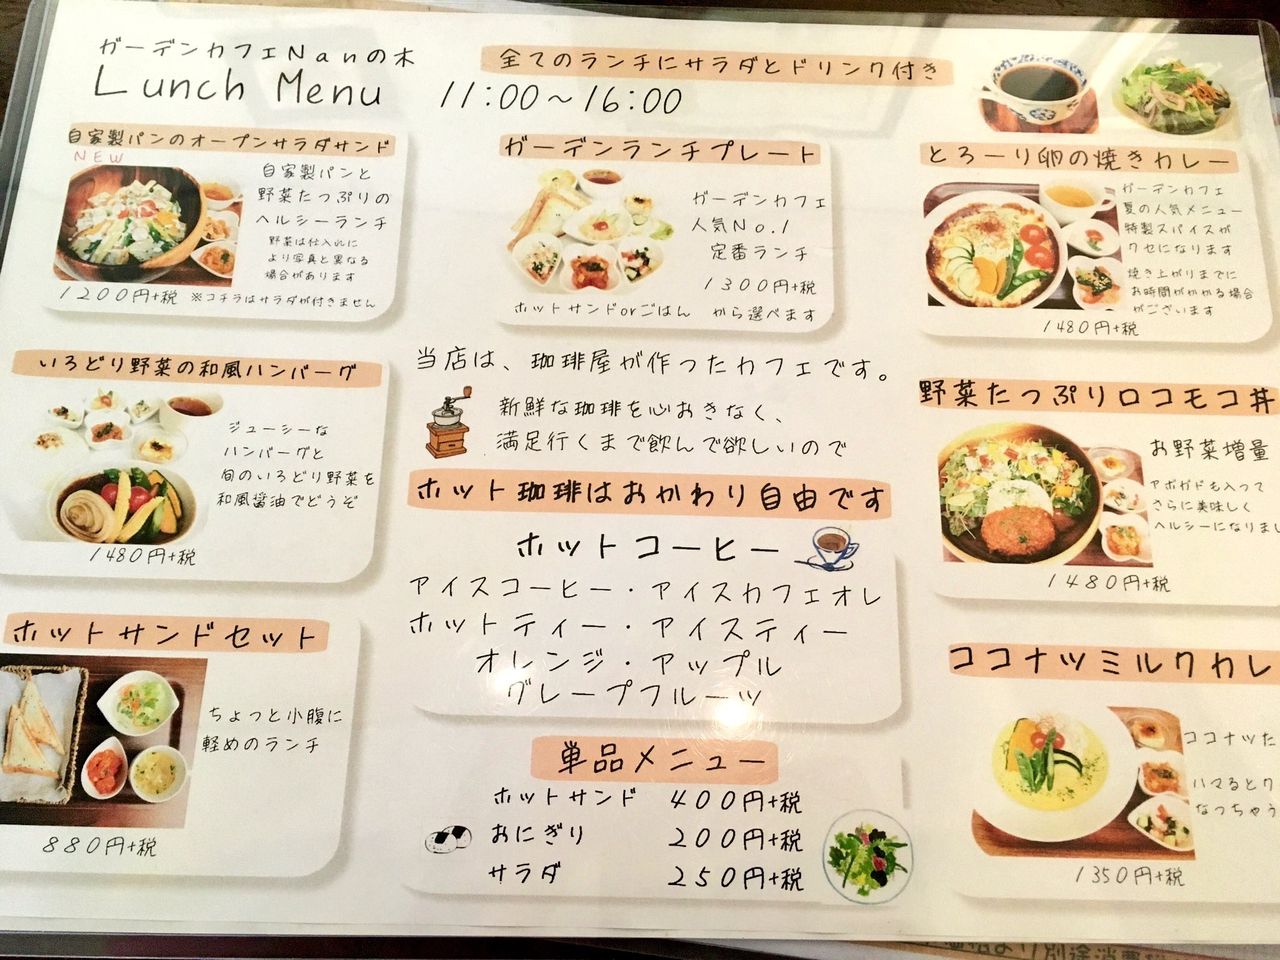 ガーデンカフェNanの木
Lunch Menu
11:00～16:00
全てのランチにサラダとドリンク付き
自家製パンのオープンサラダサンド
NEW
自家製パンと
野菜たっぷりの
ヘルシーランチ
野菜は仕入れに
より写真と異なる
場合があります
1200円+税 ※コチラはサラダが付きません
ガーデンランチプレート
ガーデンカフェ
人気No.1
定番ランチ
1300円+税
ホットサンドorごはん から選べます
とろーり卵の焼きカレー
ガーデンカフェ
夏の人気メニュー
特製スパイスが
クセになります
焼き上がりまでに
お時間がかかる場合
がございます
1480円+税
いろどり野菜の和風ハンバーグ
ジューシーな
ハンバーグと
旬のいろどり野菜を
和風醤油でどうぞ
1480円+税
当店は、珈琲屋が作ったカフェです。
新鮮な珈琲を心おきなく、
満足行くまで飲んで欲しいので
ホット珈琲はおかわり自由です
ホットコーヒー
アイスコーヒー・アイスカフェオレ
ホットティー・アイスティー
オレンジ・アップル
グレープフルーツ
野菜たっぷりロコモコ丼
お野菜増量
アボガドも入って
さらに美味しく
ヘルシーになりまし
1480円+税
ホットサンドセット
ちょっと小腹に
軽めのランチ
880円+税
単品メニュー
ホットサンド 400円+税
おにぎり 200円+税
サラダ 250円+税
ココナツミルクカレ
ココナツた
ハマるとク
なっちゃう
1350円+税
より別途消費税